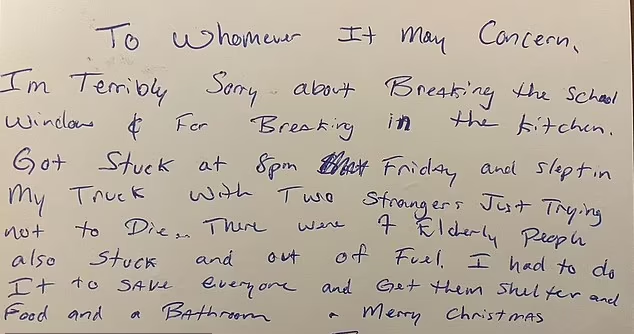 To Whomever It May Concern,
I'm Terribly Sorry about Breaking the School
Window & For Breaking in the Kitchen.
Got Stuck at 8pm Friday and slept in
My Truck with Two Strangers Just Trying
not to Die.. There were 7 Elderly People
also Stuck and out of Fuel. I had to do
It to SAVE everyone and Get them shelter and
Food and a Bathroom - Merry Christmas